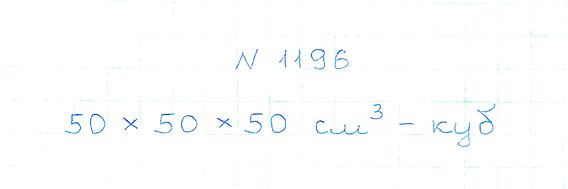 N 1196
50 × 50 × 50 см³ – куб